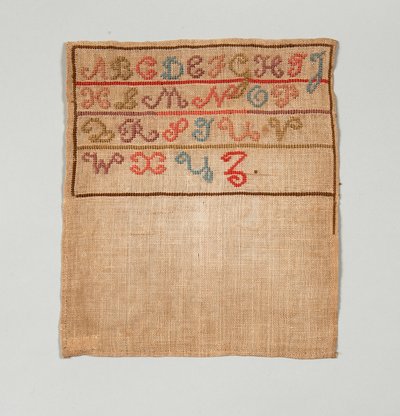 A B C D E F G H I J
K L M N O P
Q R S T U V
W X Y Z.